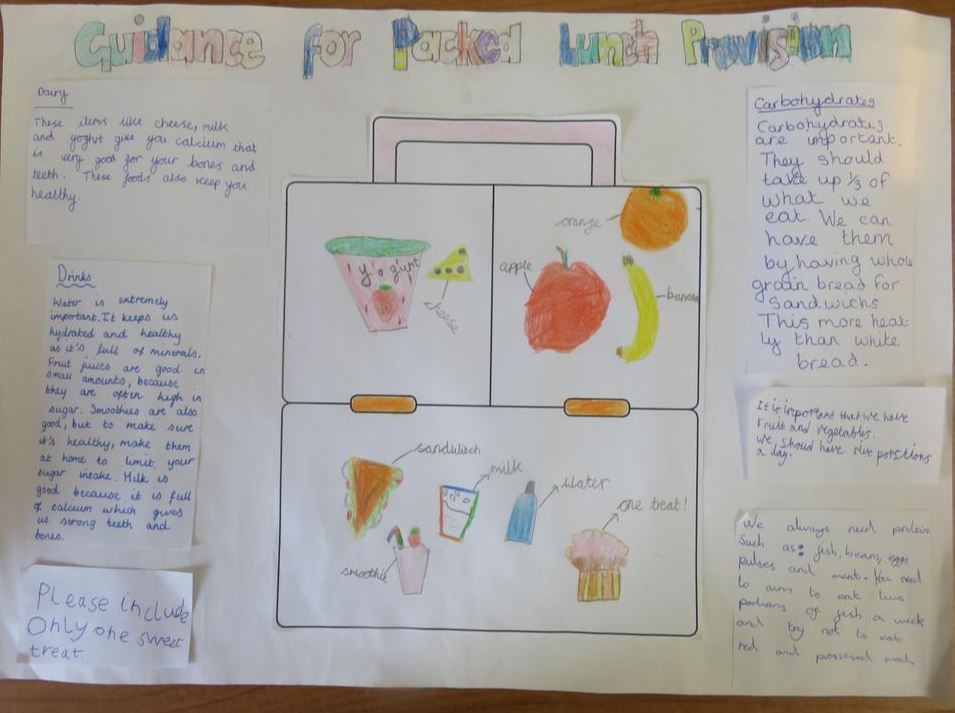 Guidance for Packed Lunch Provision
Dairy
These items like cheese, milk
and yoght give you calcium that
is very good for your bones and
teeth. These foods also keep you
healthy.
Drinks
Water is extremely
important. It keeps us
hydrated and healthy
as it's full of minerals.
Fruit juices are good in
small amounts, because
they are often high in
sugar. Smoothies are also
good, but to make sure
it's healthy, make them
at home to limit your
sugar intake. Milk is
good because it is full
of calcium which gives
us strong teeth and
bones.
Please include
Only one sweet
treat.
yogurt
cheese
orange
apple
banana
sandwitch
milk
water
one treat!
smoothie
Carbohydrates
Carbohydrates
are important.
They should
take up 1/3 of
what we
eat. We can
have them
by having whole
grain bread for
Sandwichs.
This more heat
ly than white
bread.
It is important that we have
Fruit and vegetables.
We should have five portions
a day.
We always need protein
Such as: fish, beans, eggs
pulses and meat. You need
to aim to eat two
portions of fish a week
and try not to eat
red and possesed meat.